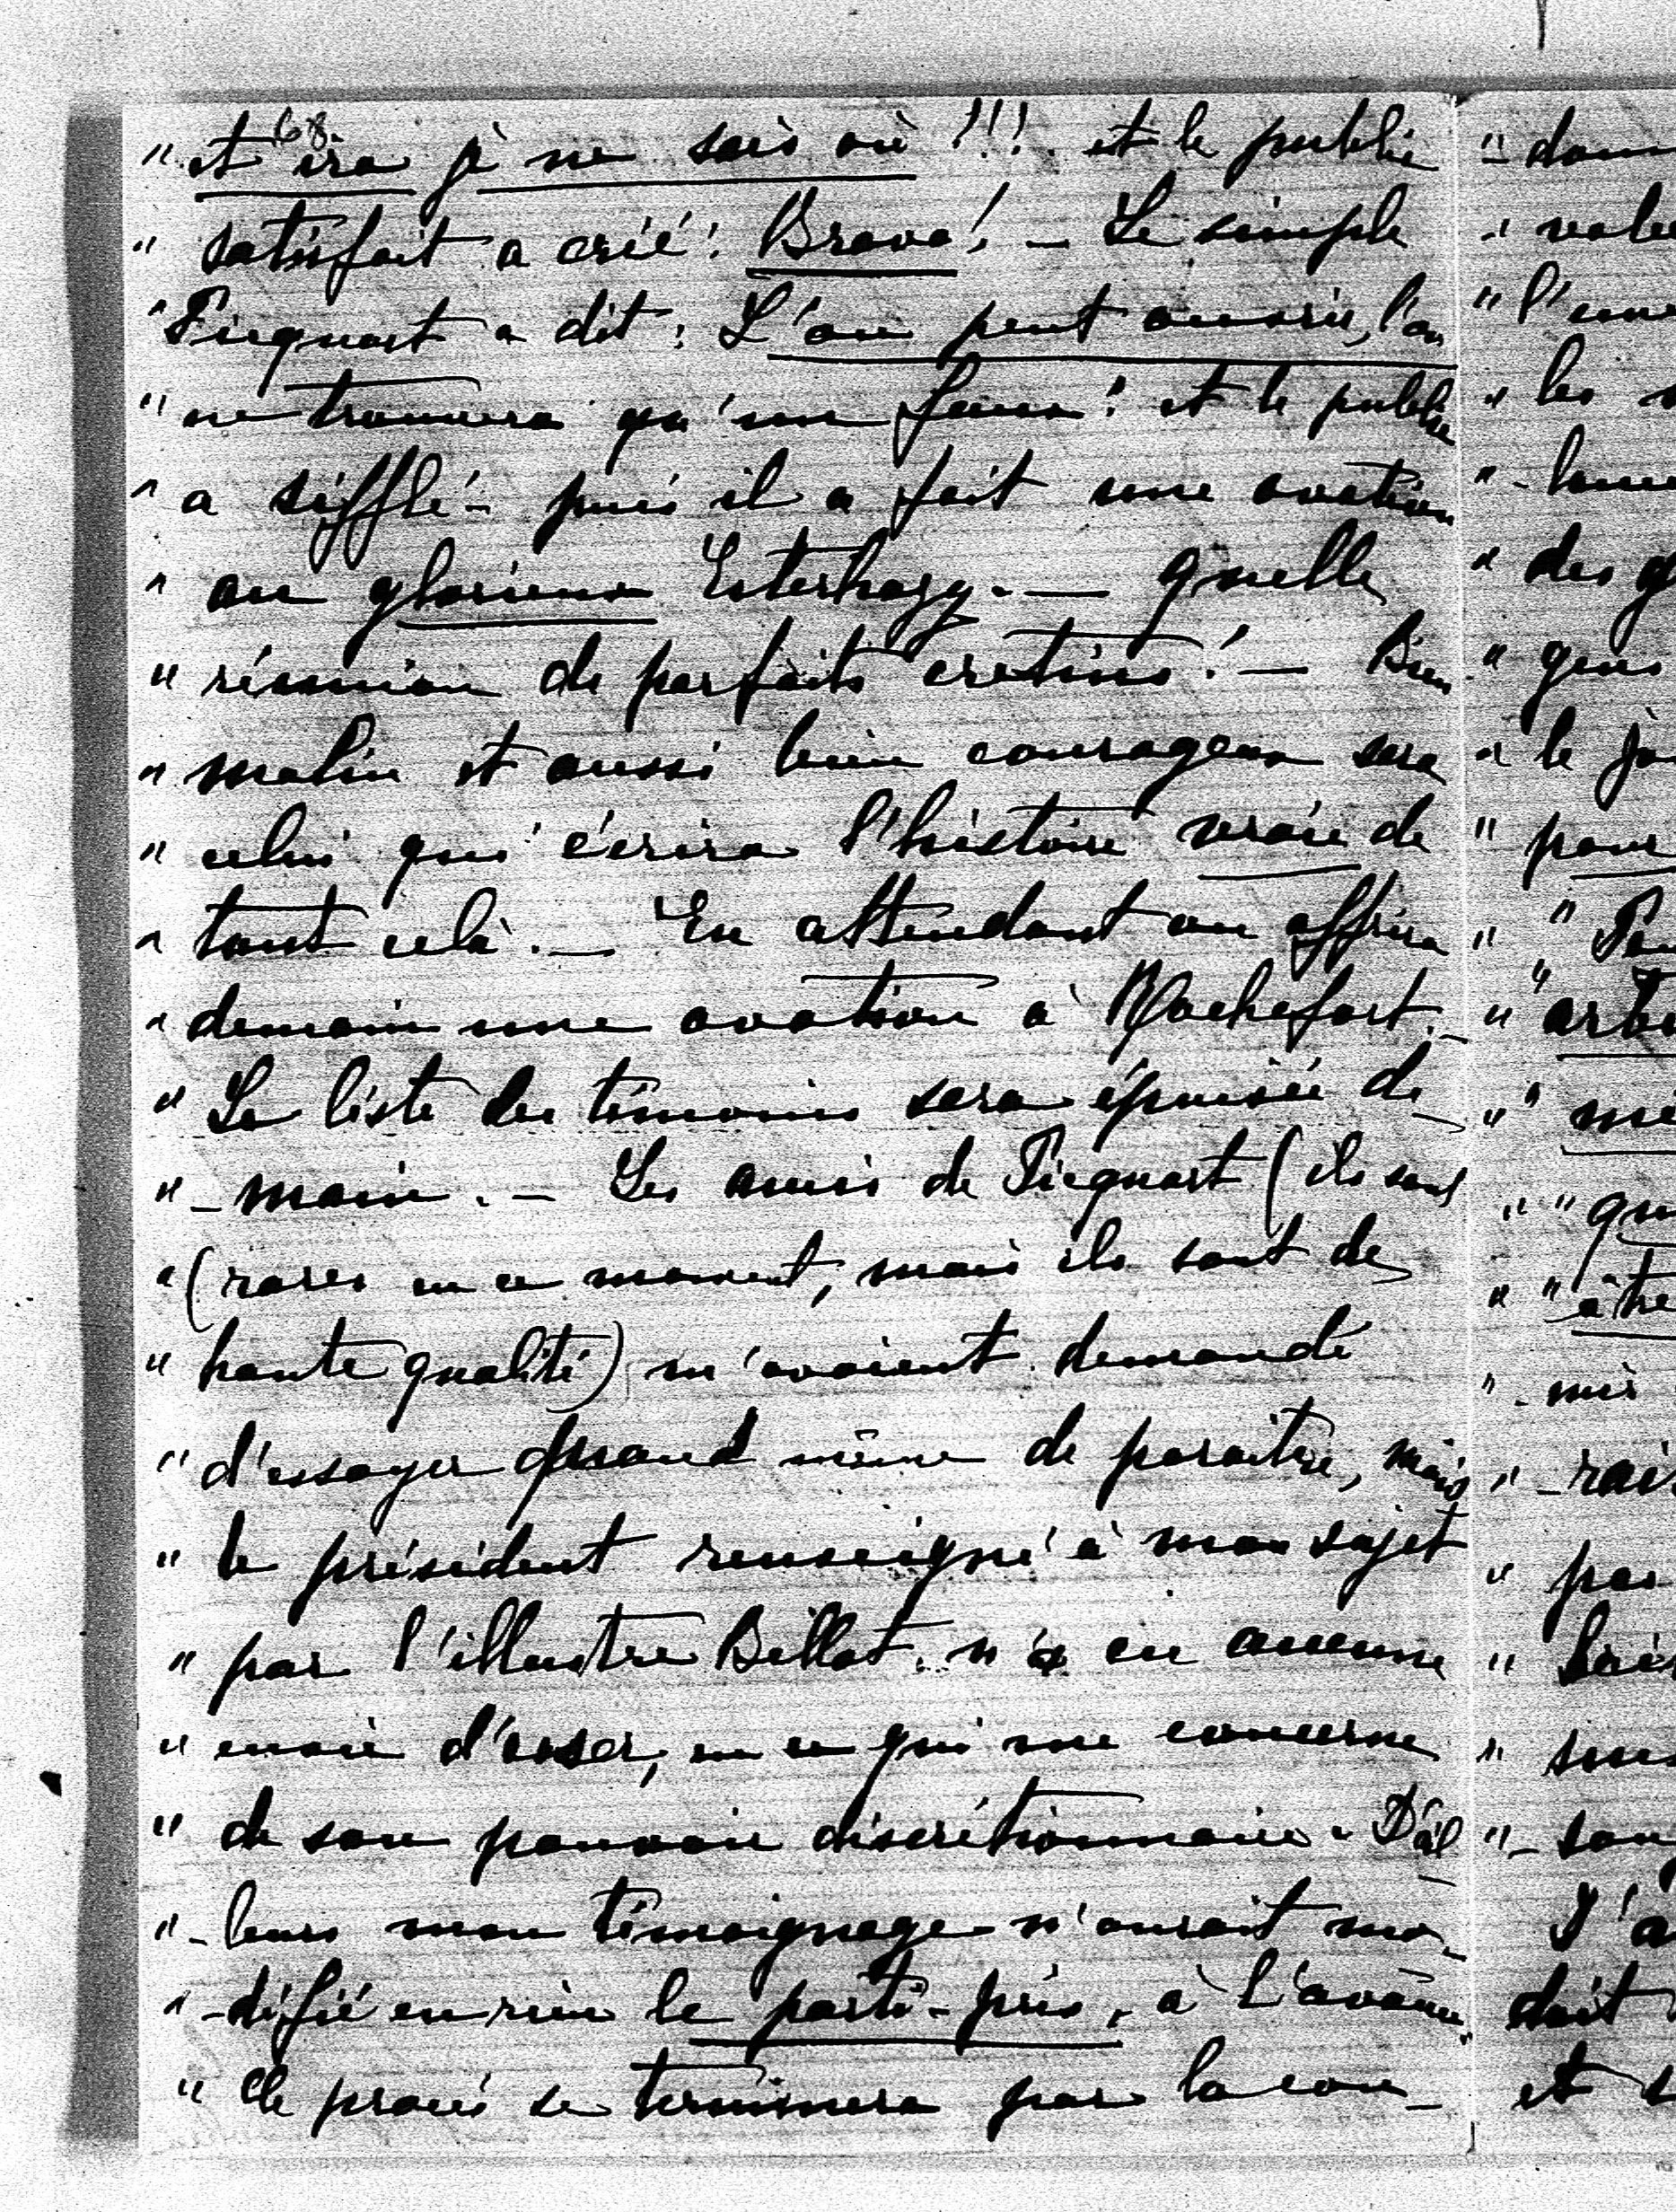 68.
" et ira je ne sais où !!! et le public
" satisfait a crié : Bravo ! — Le simple
" Picquart a dit : L'on peut ouvrir, l'on
" ne trouvera qu'un faux ! et le public
" a sifflé – puis il a fait une ovation
" au glorieux Esterhazy. — Quelle
" réunion de parfaits crétins ! — Bien
" malin et aussi bien courageux sera
" celui qui écrira l'histoire vraie de
" tout celà. — En attendant on offrira
" demain une ovation à Rochefort. –
" La liste des témoins sera épuisée de
" – main. – Les amis de Picquart (ils sont
" (rares en ce moment, mais ils sont de
" haute qualité) m'avaient demandé
" d'essayer quand même de paraître, mais
" le président renseigné à mon sujet
" par l'illustre Billot n'a eu aucune
" envie d'user, en ce qui me concerne
" de son pouvoir discrétionnaire. D'ail
" – leurs mon témoignage n'aurait mo –
" – difié en rien le parti-pris, à l'avance.
" Le procès se terminera par la con –
"
"
" l'
" les
"
" des
" gens
" le
" pour
" "
" "
" "
" " qu
" " être
"
"
" par
"
"
"
J'a
doit
et